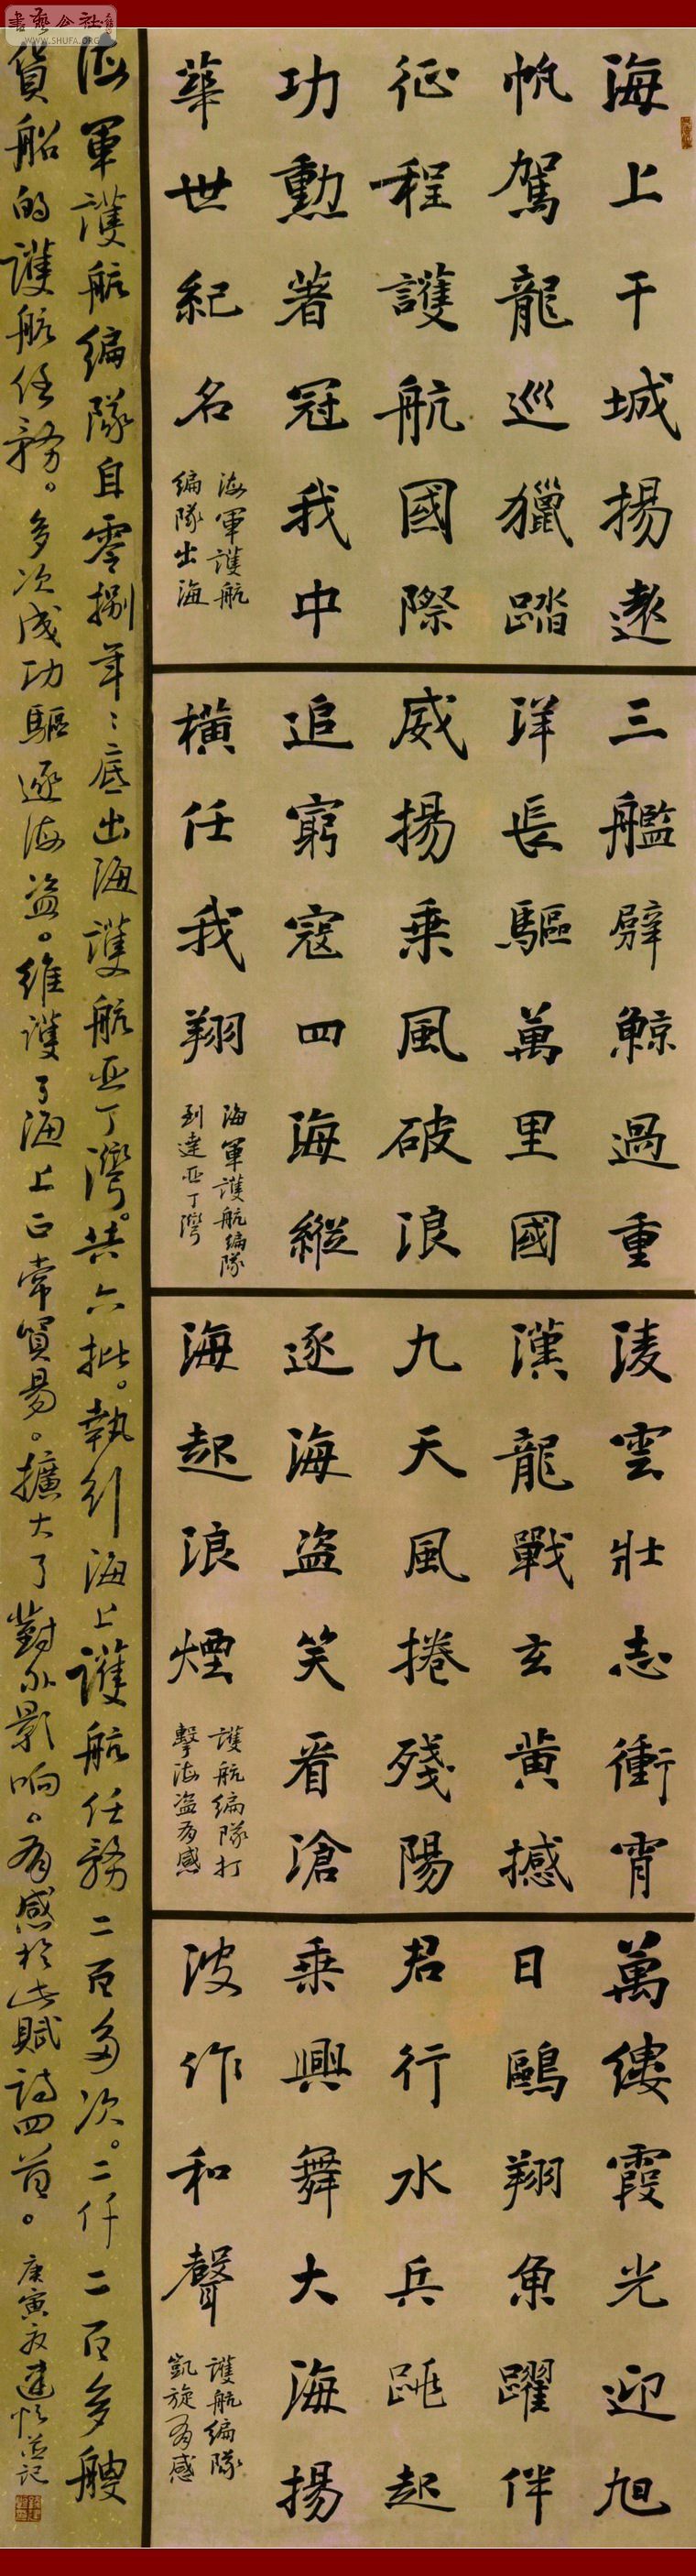 書藝公社
WWW.SHUFA.ORG
海上干城揚遠
帆駕龍巡獵踏
征程護航國際
功勳著冠我中
華世紀名
海軍護航
編隊出海
三艦劈鯨過重
洋長驅萬里國
威揚乘風破浪
追窮寇四海縱
橫任我翔
海軍護航編隊
到達亚丁灣
陵雲壯志衝霄
漢龍戰玄黃撼
九天風捲殘陽
逐海盜笑看滄
海起浪煙
護航編隊打
擊海盜有感
萬縷霞光迎旭
日鷗翔魚躍伴
君行水兵跳起
乘興舞大海揚
波作和聲
護航編隊
凱旋有感
海軍護航編隊自零捌年年底出海護航亚丁灣。共六批。執行海上護航任務二百多次。二仟二百多艘
貨船的護航任務。多次成功驅逐海盜。維護了海上正常貿易。擴大了對外影响。有感於此賦詩四首。庚寅夜建並記